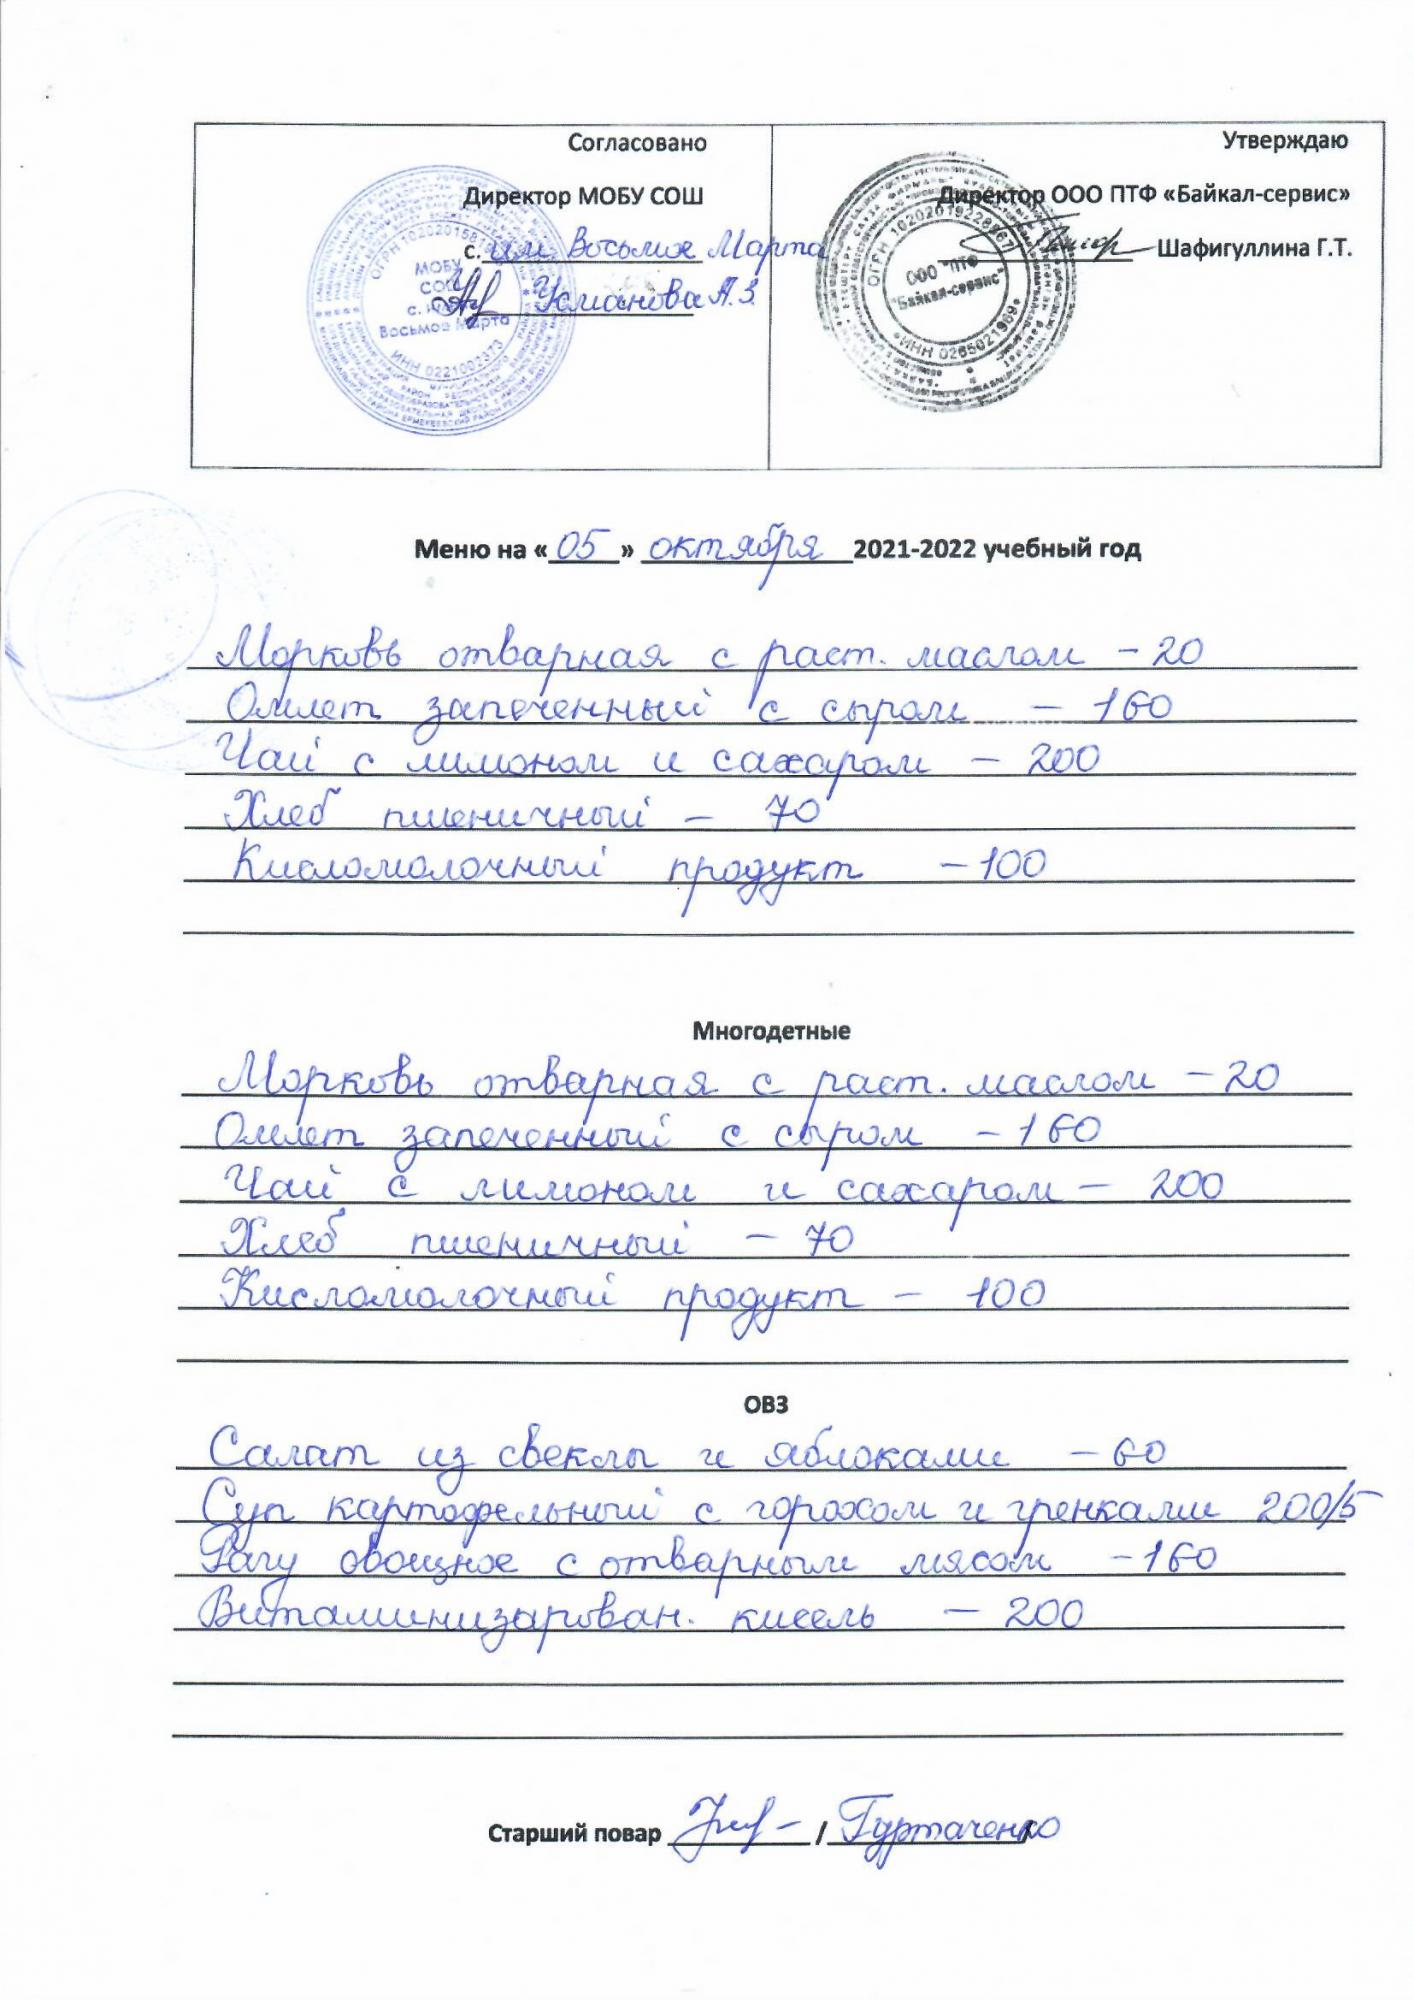 Согласовано
Директор МОБУ СОШ
с. им. Восьмое Марта
Усманова А.З.
ОГРН 10202015
МОБУ
СОШ
с. им.
Восьмое Марта
ИНН 0221002373
Утверждаю
Директор ООО ПТФ «Байкал-сервис»
Шафигуллина Г.Т.
ООО "ПТФ
"Байкал-сервис"
ИНН 0265021969
Меню на «05» октября 2021-2022 учебный год
Морковь отварная с раст. маслом – 20
Омлет запеченный с сыром – 160
Чай с лимоном и сахаром – 200
Хлеб пшеничный – 70
Кисломолочный продукт – 100
Многодетные
Морковь отварная с раст. маслом – 20
Омлет запеченный с сыром – 160
Чай с лимоном и сахаром – 200
Хлеб пшеничный – 70
Кисломолочный продукт – 100
ОВЗ
Салат из свеклы и яблоками – 60
Суп картофельный с горохом и гренками 200/5
Рагу овощное с отварным мясом – 160
Витаминизирован. кисель – 200
Старший повар / Гуртаченко